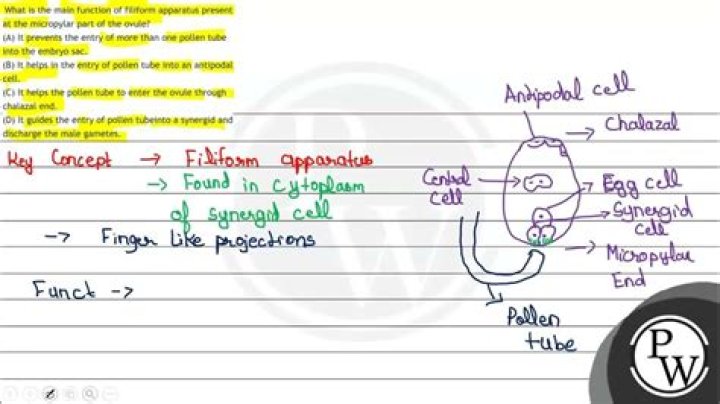 What is the main function of filiform apparatus present
at the micropylar part of the ovule?
(A) It prevents the entry of more than one pollen tube
into the embryo sac.
(B) It helps in the entry of pollen tube into an antipodal
cell.
(C) It helps the pollen tube to enter the ovule through
chalazal end.
(D) It guides the entry of pollen tubeinto a synergid and
discharge the male gametes.
Key Concept → Filiform apparatus
→ Found in cytoplasm
of synergid cell
→ Finger like projections
Funct →
Antipodal cell
→ Chalazal
Central
cell
Egg cell
Synergid
cell
Micropylar
End
Pollen
tube
PW